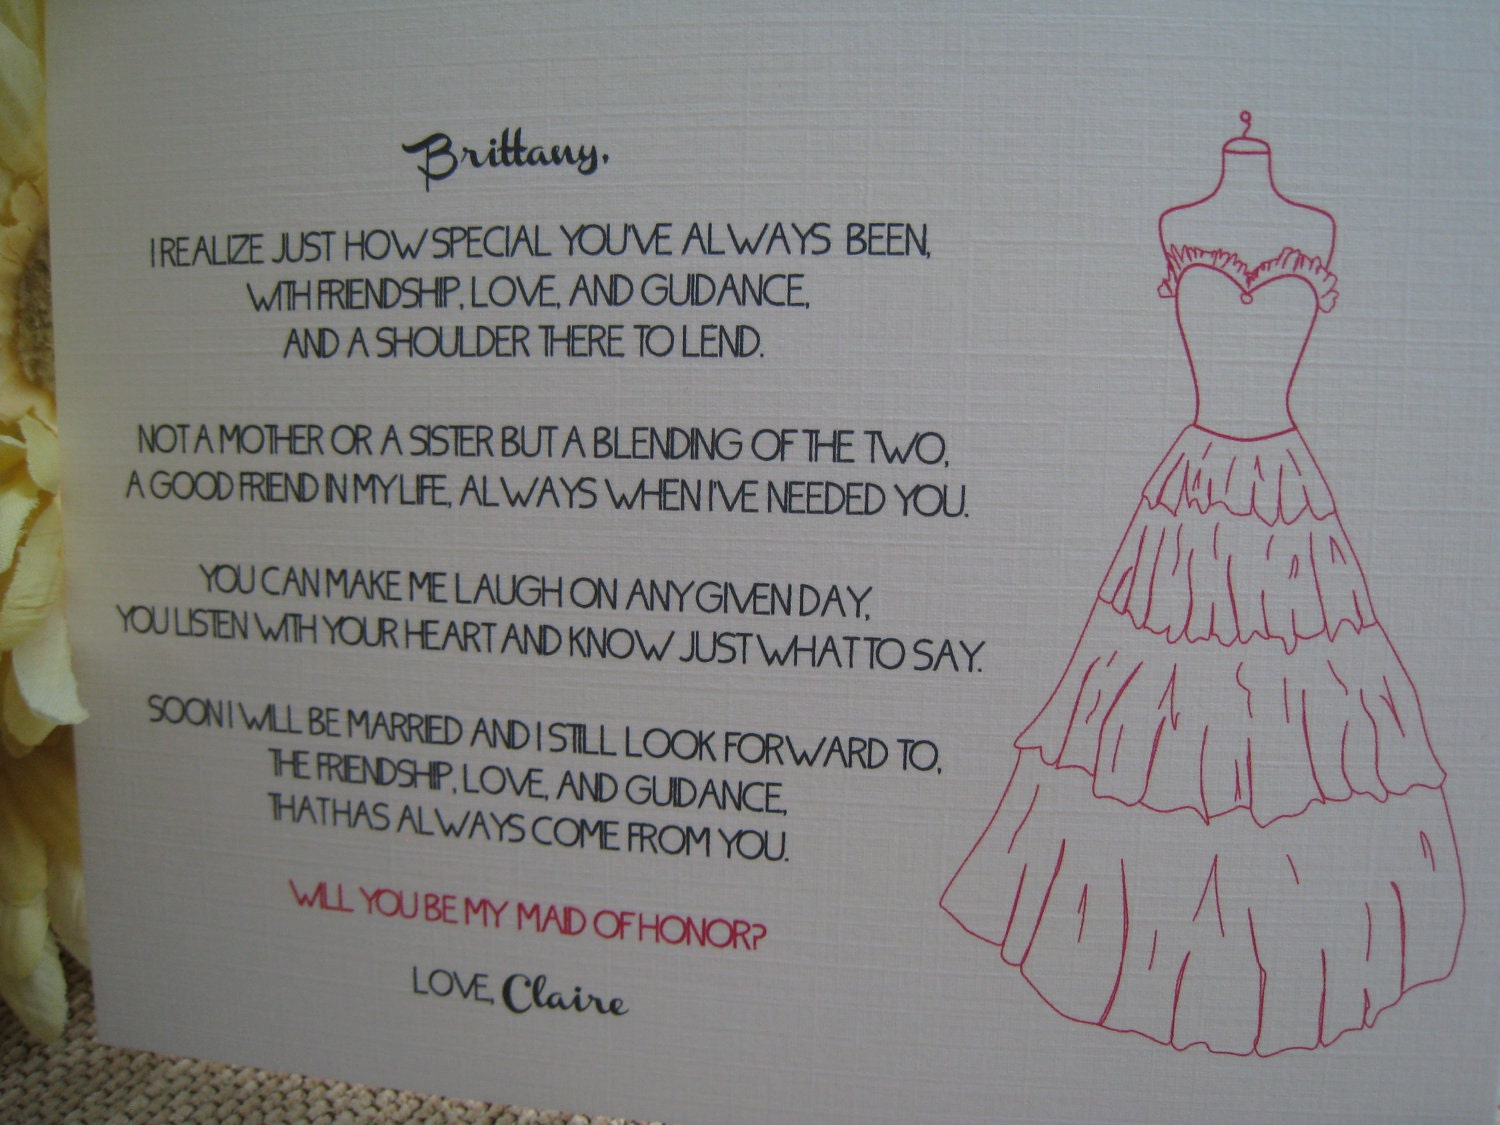 Brittany,
I REALIZE JUST HOW SPECIAL YOU'VE ALWAYS BEEN,
WITH FRIENDSHIP, LOVE, AND GUIDANCE,
AND A SHOULDER THERE TO LEND.
NOT A MOTHER OR A SISTER BUT A BLENDING OF THE TWO,
A GOOD FRIEND IN MY LIFE, ALWAYS WHEN I'VE NEEDED YOU.
YOU CAN MAKE ME LAUGH ON ANY GIVEN DAY,
YOU LISTEN WITH YOUR HEART AND KNOW JUST WHAT TO SAY.
SOON I WILL BE MARRIED AND I STILL LOOK FORWARD TO,
THE FRIENDSHIP, LOVE, AND GUIDANCE,
THAT HAS ALWAYS COME FROM YOU.
WILL YOU BE MY MAID OF HONOR?
LOVE, Claire